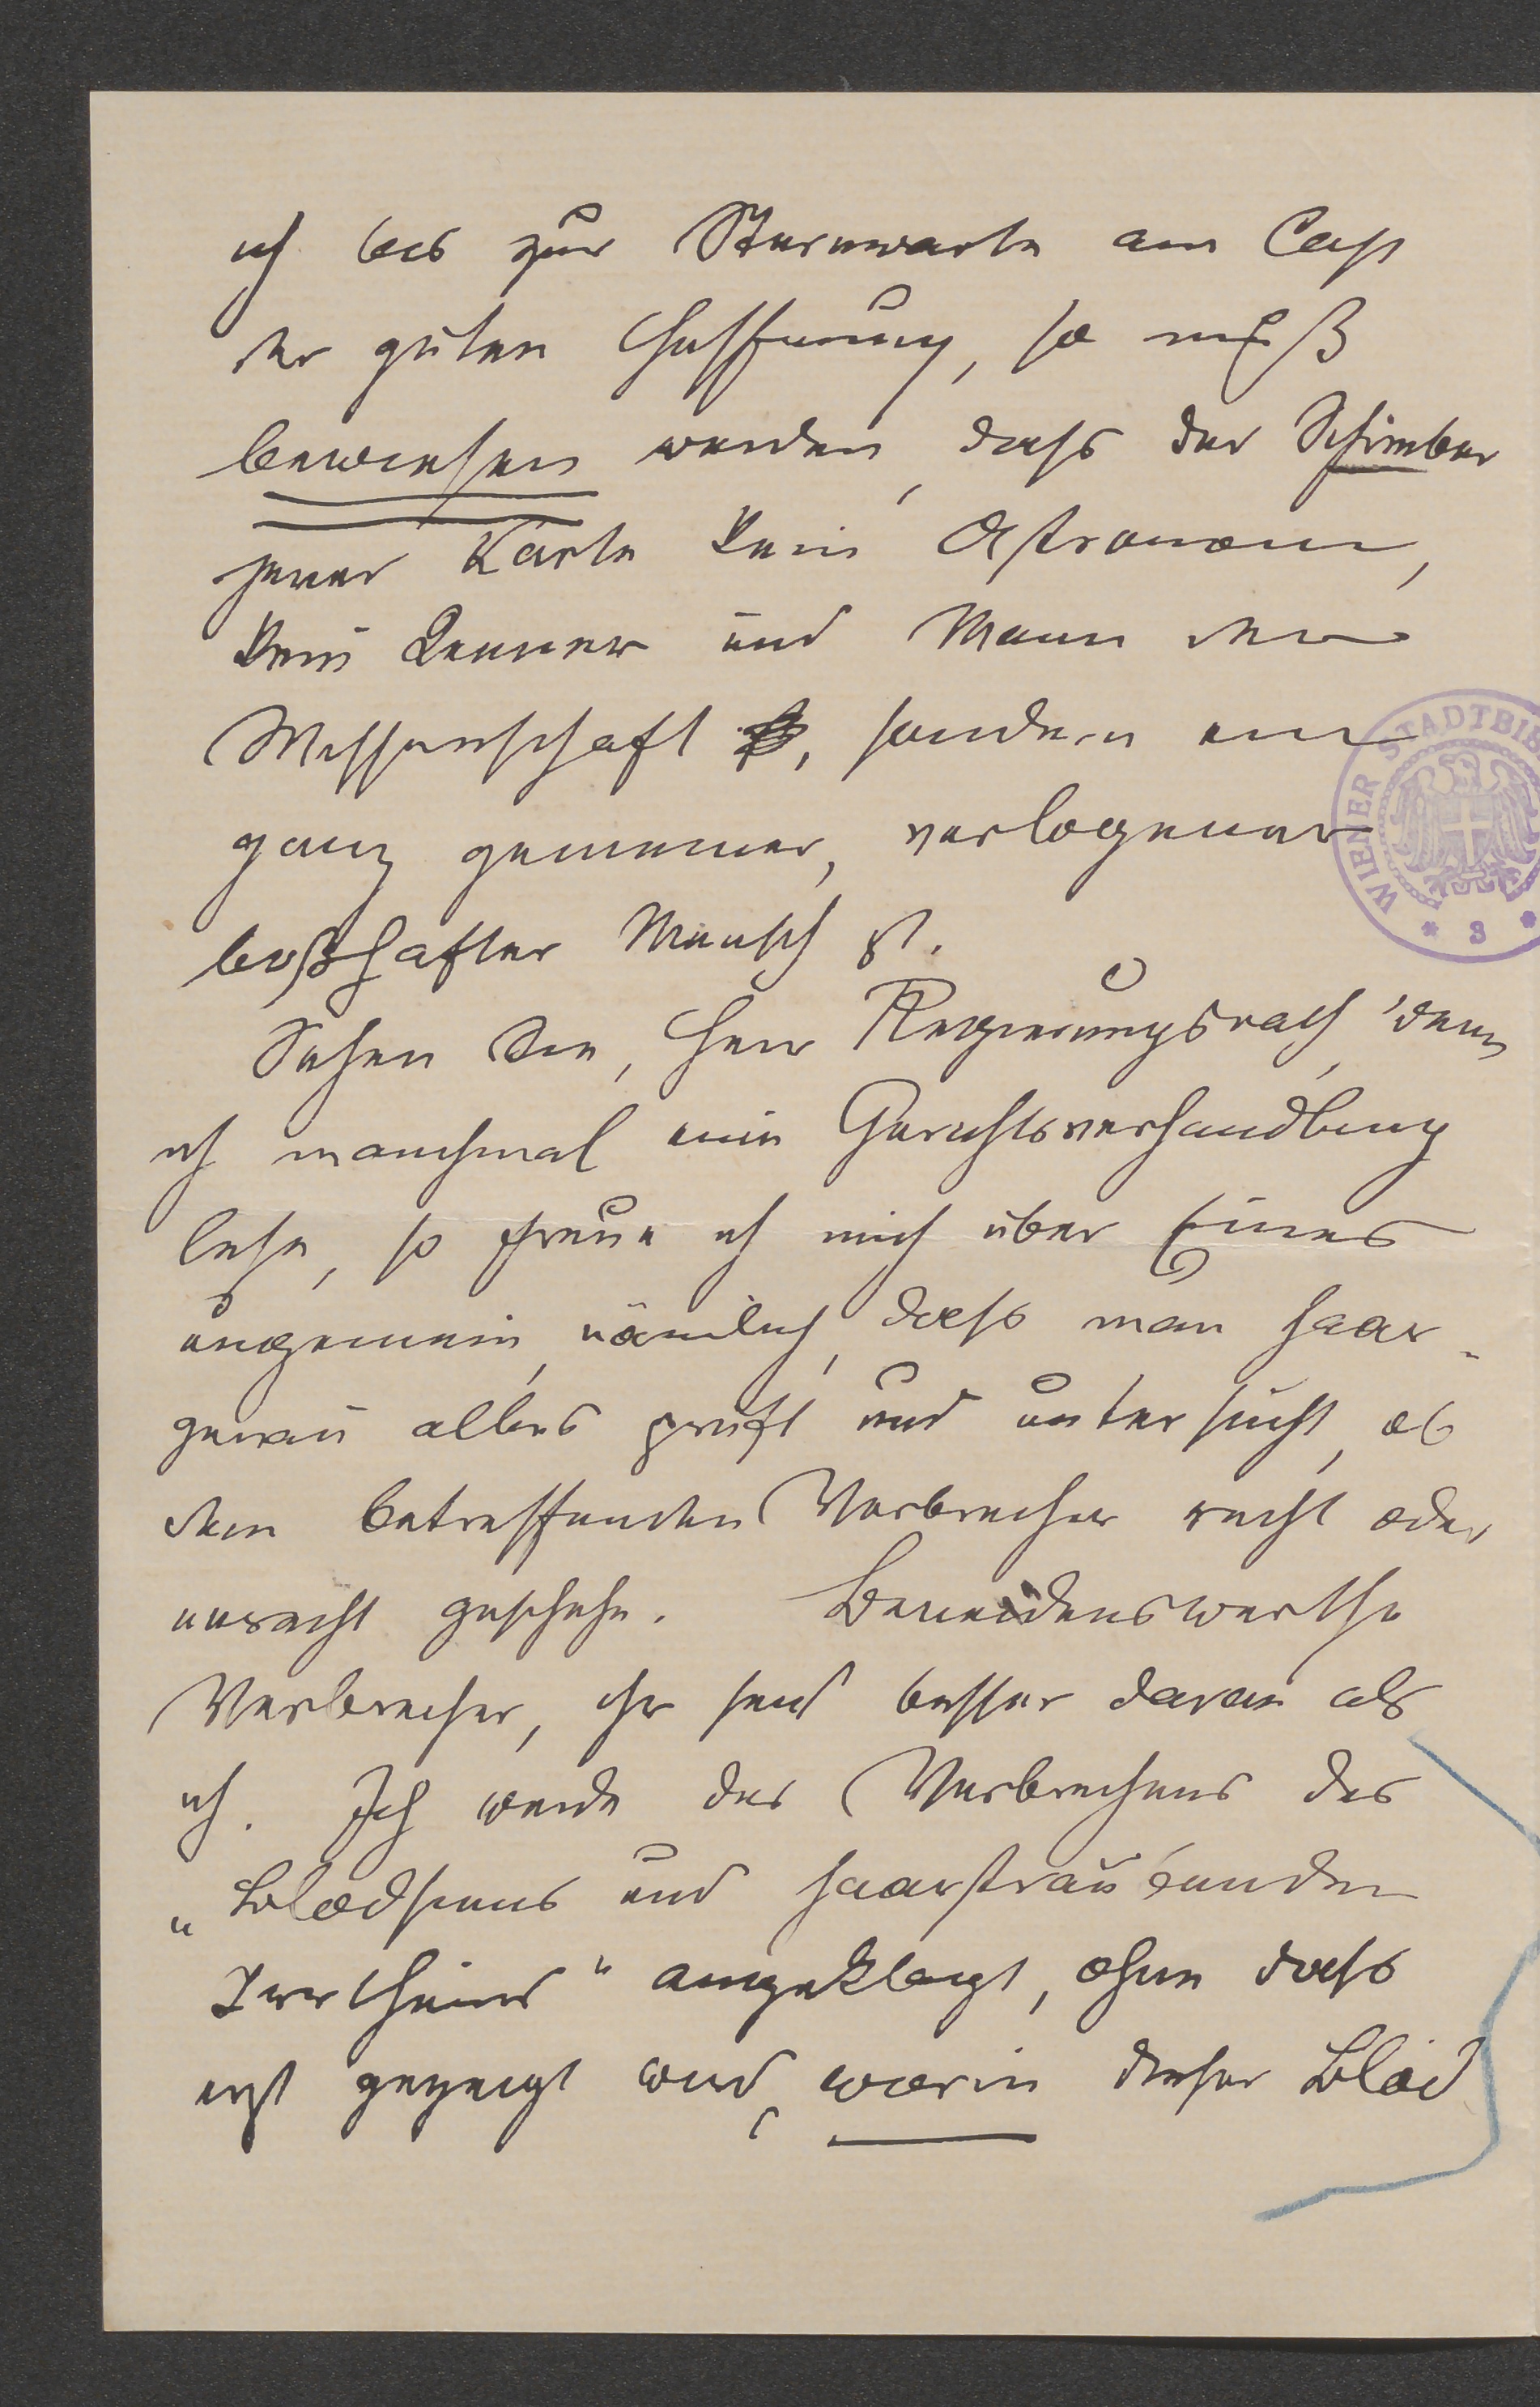 ich bis zur Sternwarte am Cap
der guten Hoffnung, so muß
bewiesen werden, dass der Schreiber
jener Karte kein Astronom,
kein Kenner und Mann der
Wissenschaft, sondern ein
ganz gemeiner, verlogener
boßhafter Mensch ist.
Sehen Sie, Herr Regierungsrath, wenn
ich manchmal eine Gerichtsverhandlung
lese, so freue ich mich über Eines
ungemein, nämlich, dass man haar-
genau alles prüft und untersucht, ob
dem betreffenden Verbrecher recht oder
unrecht geschehe. Beneidenswerthe
Verbrecher, ihr seid besser daran als
ich. Ich werde des Verbrechens des
„Blödsinns und haarsträubenden
Irrthums" angeklagt, ohne dass
erst gezeigt wird, worin dieser Blöd
WIENER STADTBIB
* 3 *